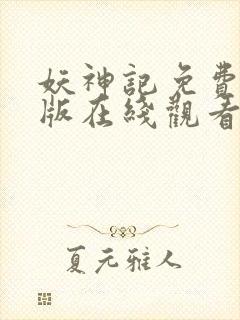 妖神記免費
版在綫觀看
夏元雅人